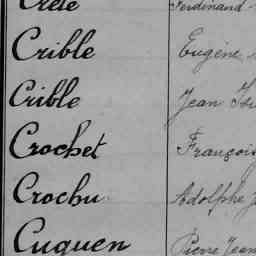 Crete Ferdinand
Crible Eugène
Crible Jean
Crochet François
Crochu Adolphe
Cuquen Pierre Jean